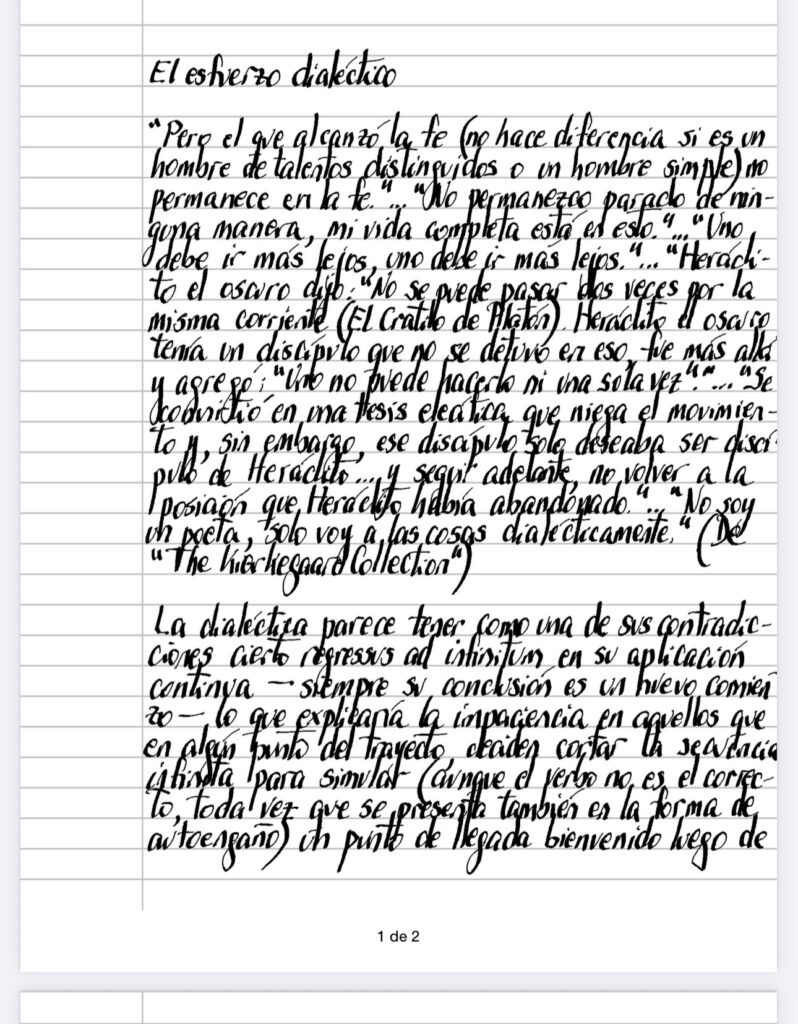 El esfuerzo dialéctico
"Pero el que alcanzó la fe (no hace diferencia si es un
hombre de talentos distinguidos o un hombre simple) no
permanece en la fe."... "No permanezco parado de nin-
guna manera, mi vida completa está en esto."... "Uno
debe ir más lejos, uno debe ir más lejos."... "Herácli-
to el oscuro dijo: "No se puede pasar dos veces por la
misma corriente (El Cratilo de Platón). Heráclito el oscuro
tenía un discípulo que no se detuvo en eso, fue más allá
y agregó: "Uno no puede hacerlo ni una sola vez"."... "Se
convirtió en una tesis eleática que niega el movimien-
to y, sin embargo, ese discípulo solo deseaba ser discí-
pulo de Heráclito... y seguir adelante, no volver a la
posición que Heráclito había abandonado."... "No soy
un poeta, solo voy a las cosas dialécticamente." (De
"The Kierkegaard Collection")
La dialéctica parece tener como una de sus contradic-
ciones cierto regressus ad infinitum en su aplicación
continua — siempre su conclusión es un nuevo comien
zo — lo que explicaría la impaciencia en aquellos que
en algún punto del trayecto, deciden cortar la secuencia
infinita para simular (aunque el verbo no es el correc-
to, toda vez que se presenta también en la forma de
autoengaño) un punto de llegada bienvenido luego de
1 de 2